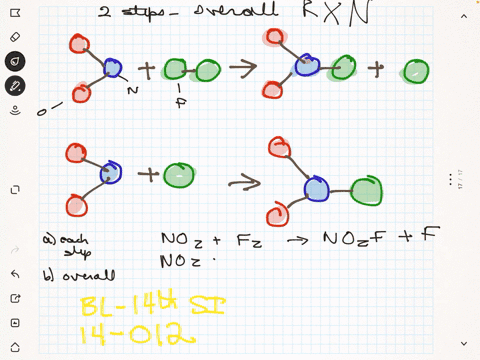 2 steps - overall RXN
O N F
a) each step
NO2 + F2 → NO2F + F
NO2 ·
b) overall
BL-14th SI
14-012